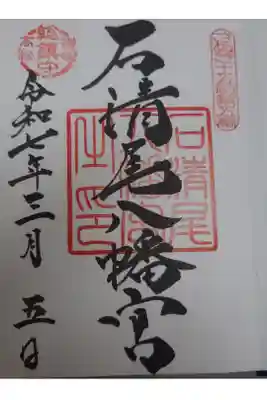 石清尾八幡宮
石清尾
八幡宮
之印
令和七年三月 五日